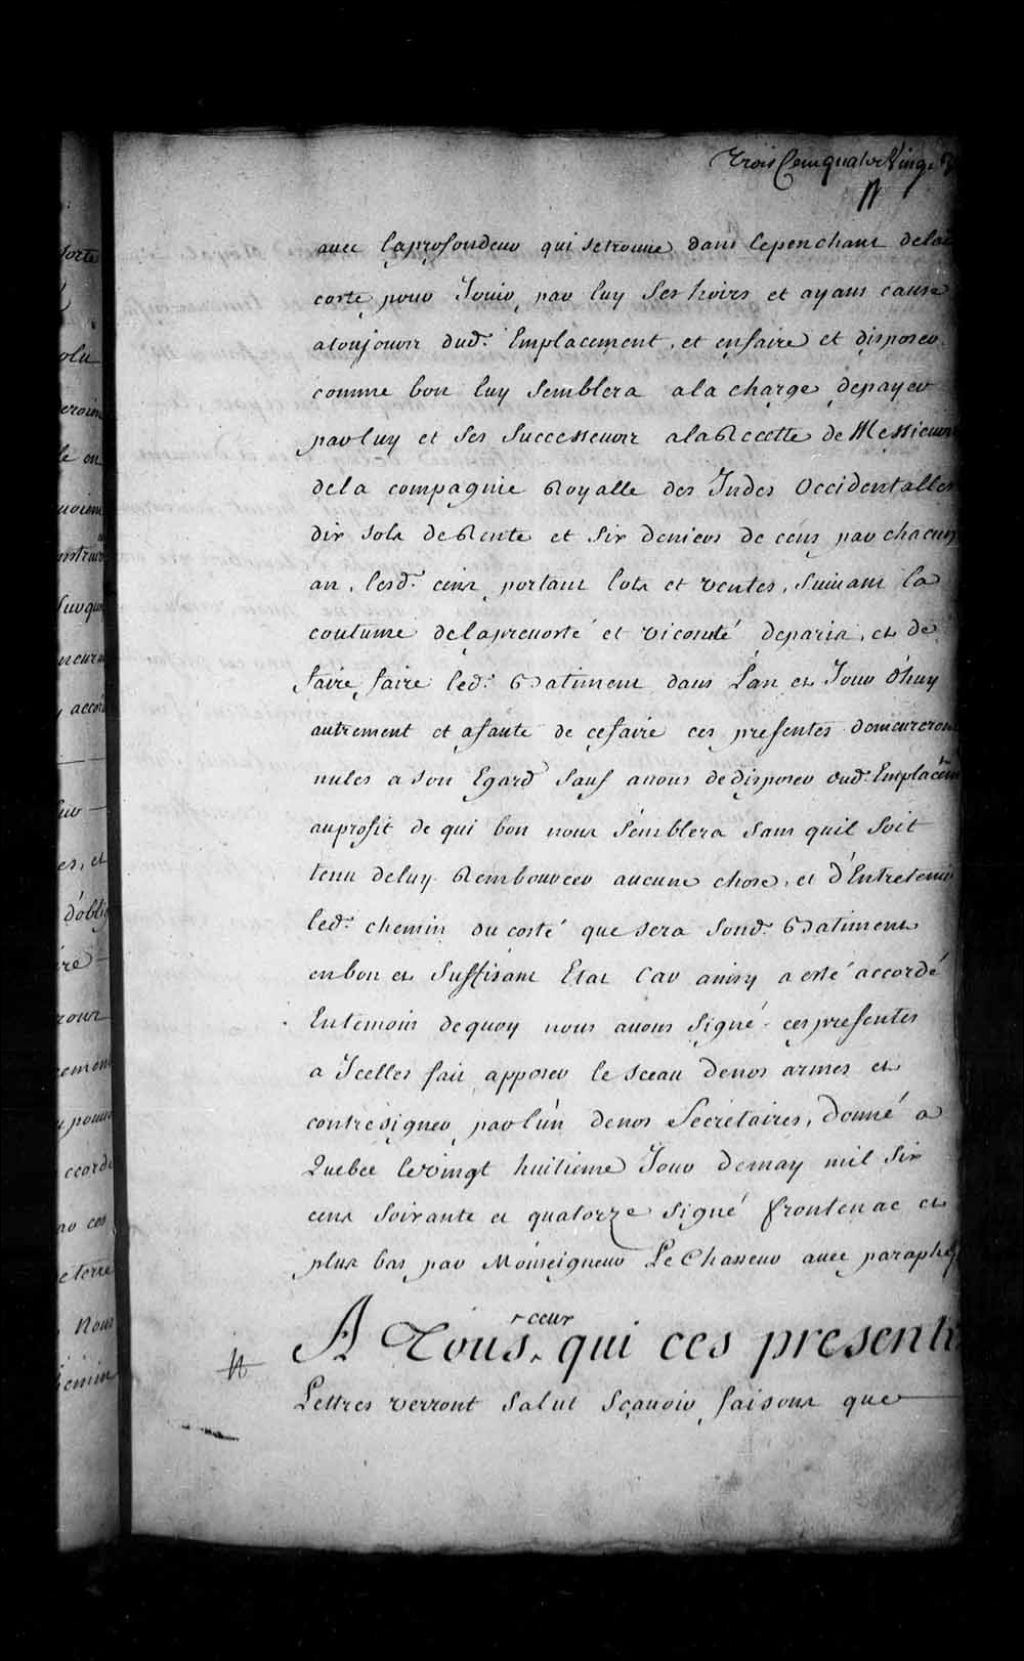 Trois Cent quatre Ving.
avec laprofondeur qui setrouve dans lepenchant dela
coste pour Jouir par luy Ses hoirs et ayans cause
atoujours dud. Emplacement, et enfaire et disposer
comme bon luy Semblera ala charge depayer
parluy et Ses Successeurs alaRecette de Messieurs
dela compagnie Royalle des Indes Occidentalles
dix sols deRente et Six deniers de cens par chacun
an, lesd. cens portant lots et ventes, Suivant la
coutume delaprevosté et vicomté deparis, et de
faire faire led. Batiment dans L'an et Jour d'huy
autrement et afaute de cefaire ces presentes demeureront
nulles a Son Egard Sauf anous dedisposer dud. Emplacem
auproffit de qui bon nous Semblera Sans quil Soit
tenu deluy Rembourcer aucune chose, et d'Entretenir
led. chemin du costé que sera Sond. Batiment
enbon et Suffisant Etat Car ainsy a esté accordé
Entemoin dequoy nous avons Signé ces presentes
a Icelles fait apposer le sceau denos armes et
contresigner par l'un denos Secretaires, Donné a
Quebec levingt huitieme Jour demay mil Six
cens Soixante et quatorze Signé frontenac et
plus bas par Monseigneur Le Chasseur avec paraphe
ceux
A Tous qui ces presentes
Lettres verront Salut Sçavoir faisons que
forte
olu
eroien
le en
uoient
nstruir
Suvque
accor
es, et
d'oblig
re
rour
cement
y pour
ccorde
ces
eterre
Nous